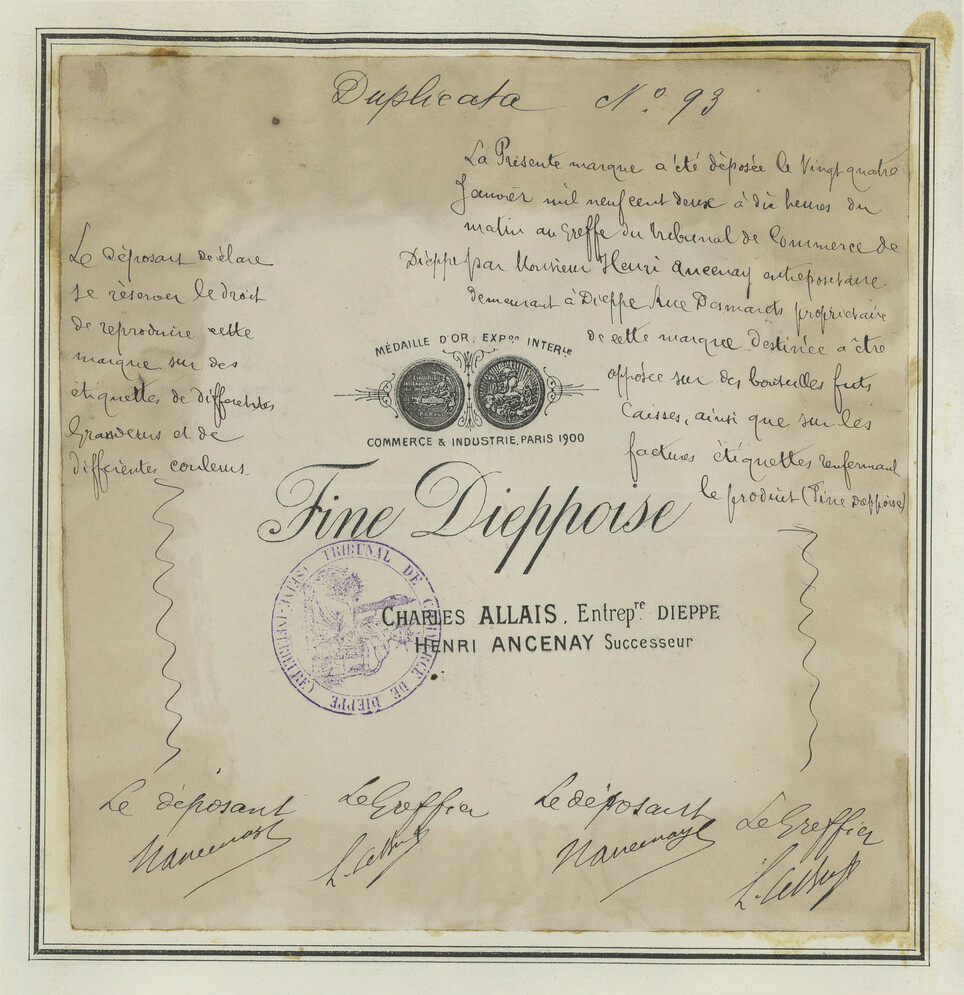 Duplicata N° 93
La Présente marque a été déposée le Vingt quatre
Janvier mil neuf cent deux à dix heures du
matin au Greffe du tribunal de Commerce de
Dieppe par Monsieur Henri Ancenay entrepositaire
demeurant à Dieppe Rue Desmarets propriétaire
de cette marque destinée a être
opposée sur des bouteilles futs
Caisses, ainsi que sur les
factures étiquettes renfermant
le produit (Fine Dieppoise)
Le déposant déclare
se réserver le droit
de reproduire cette
marque sur des
étiquettes de differentes
Grandeurs et de
différentes couleurs.
MÉDAILLE D'OR, EXPon INTERLE
COMMERCE & INDUSTRIE, PARIS 1900
Fine Dieppoise
TRIBUNAL DE COMMERCE DE DIEPPE
(SEINE-INFÉRIEURE)
CHARLES ALLAIS, Entrepre DIEPPE
HENRI ANCENAY Successeur
Le déposant Le Greffier Le déposant Le Greffier